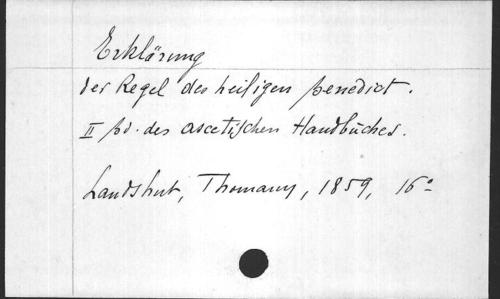 Erklärung
der Regel des heiligen Benedict.
II Bd. des ascetischen Handbuches.
Landshut, Thomann, 1859, 16°